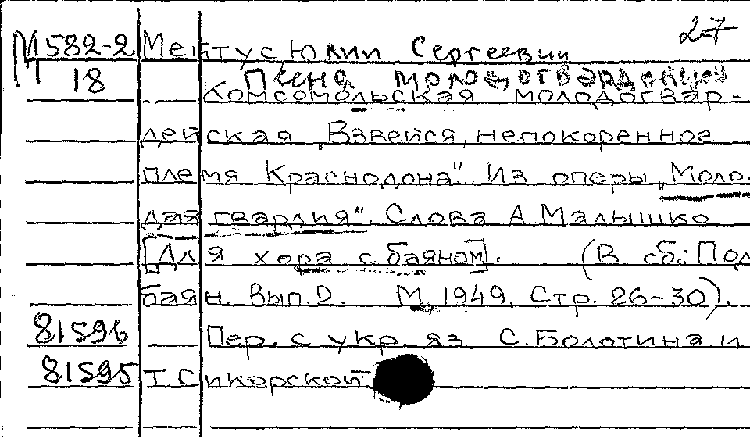 27
М582-2 Мейтус Юлий Сергеевич
М 18 Песня молодогвардейцев
Комсомольская молодогвар-
дейская „Взвейся, непокоренное
племя Краснодона". Из оперы „Моло-
дая гвардия". Слова А. Малышко
[Для хора с баяном]. (В сб.: Пол
баян. Вып. 2. М. 1949. Стр. 26-30).
81596 Пер. с укр. яз С. Болотина и
81595 Т. Сикорской.